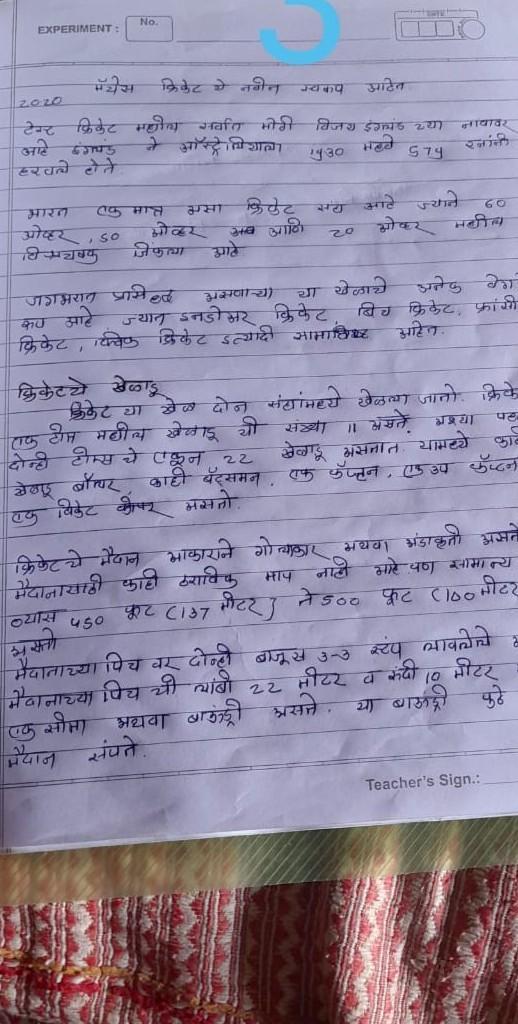 EXPERIMENT :
No.
DATE
2020 मॅचेस क्रिकेट चे नवीन स्वरूप आहेत
टेस्ट क्रिकेट मधील सर्वात मोठी विजय इंग्लंड च्या नावावर
आहे इंग्लंड ने ऑस्ट्रेलियाला 1930 मध्ये 579 रनांनी
हरवले होते.
भारत एक मात्र असा क्रिकेट संघ आहे ज्याने 60
ओव्हर, 50 ओव्हर आणि 20 ओव्हर मधील
विश्वचषक जिंकला आहे
जगभरात प्रसिद्ध असणाऱ्या या खेळाचे अनेक
रूप आहे ज्यात इनडोअर क्रिकेट, बिच क्रिकेट,
क्रिकेट, क्विक क्रिकेट इत्यादी सामाविष्ट आहेत.
क्रिकेटचे खेळाडू
क्रिकेट या खेळ दोन संघांमध्ये खेळला जातो.
एक टीम मधील खेळाडू ची संख्या 11 असते. अश्या
दोन्ही टीम्स चे एकून 22 खेळाडू असतात. यामध्ये
खेळाडू बॉलर, काही बॅट्समन, एक कॅप्टन, एक उप कॅप्टन
एक विकेट कीपर असतो.
क्रिकेटचे मैदान आकाराने गोलाकार अथवा अंडाकृती असते
मैदानासाठी काही ठराविक माप नाही आहे पण सामान्य
व्यास 450 फूट (137 मीटर) ते 500 फूट (100 मीटर
असतो
मैदानाच्या पिच वर दोन्ही बाजूस 3-3 स्टंप लावलेले
मैदानाच्या पिच ची लांबी 22 मीटर व रुंदी 10 मीटर
एक सीमा अथवा बाऊंड्री असते. या बाऊंड्री पुढे
मैदान संपते.
Teacher's Sign.: